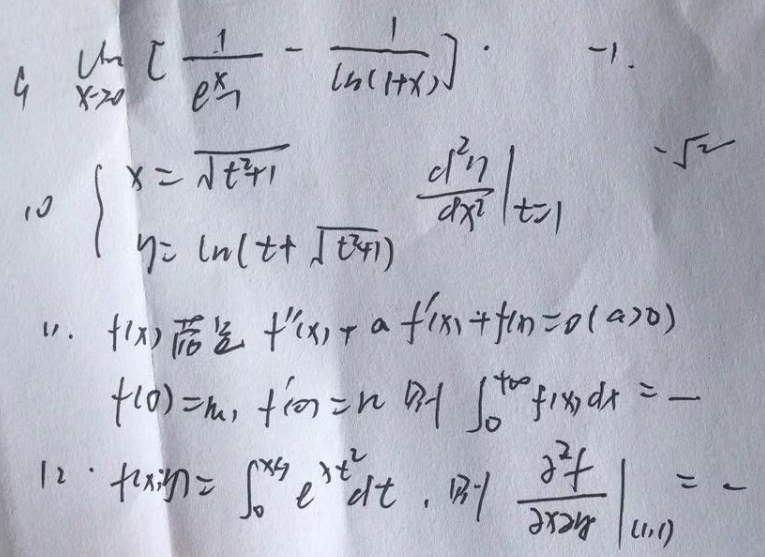 9 lim x→0 [ 1/(e^x-1) - 1/ln(1+x) ] . -1.
10 { x = √(t²+1) d²y/dx² |t=1 -√2
y = ln(t+√(t²+1))
11. f(x) 满足 f''(x) + a f'(x) + f(x) = 0 (a>0)
f(0)=m, f'(0)=n 则 ∫₀^{+∞} f(x)dx = —
12. f(x,y) = ∫₀^{xy} e^{xt²} dt , 则 ∂²f/∂x∂y |(1,1) = -